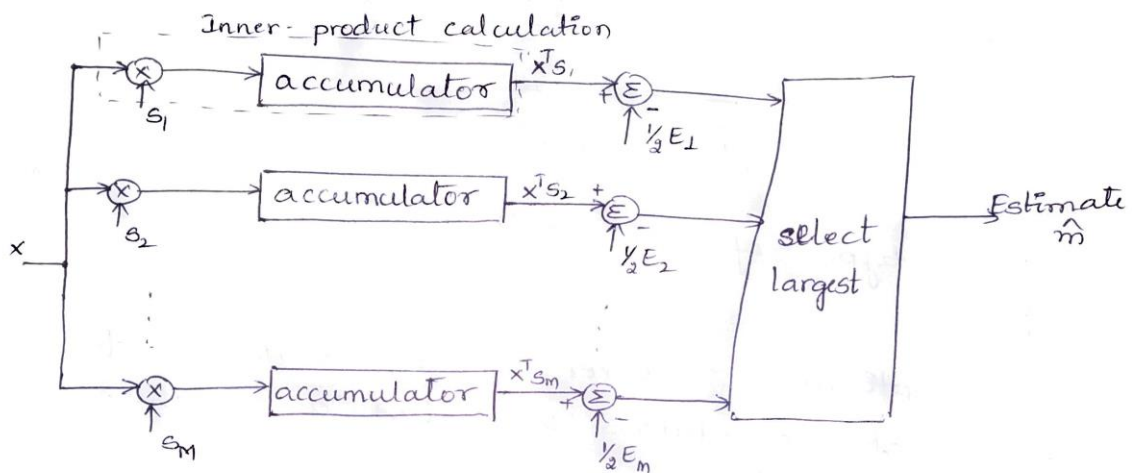 Inner-product calculation
x accumulator xᵀs₁ + Σ -
s₁ ½E₁
x accumulator xᵀs₂ + Σ -
s₂ ½E₂
x
select
largest
Estimate
m̂
x accumulator xᵀsₘ + Σ -
s_M ½Eₘ